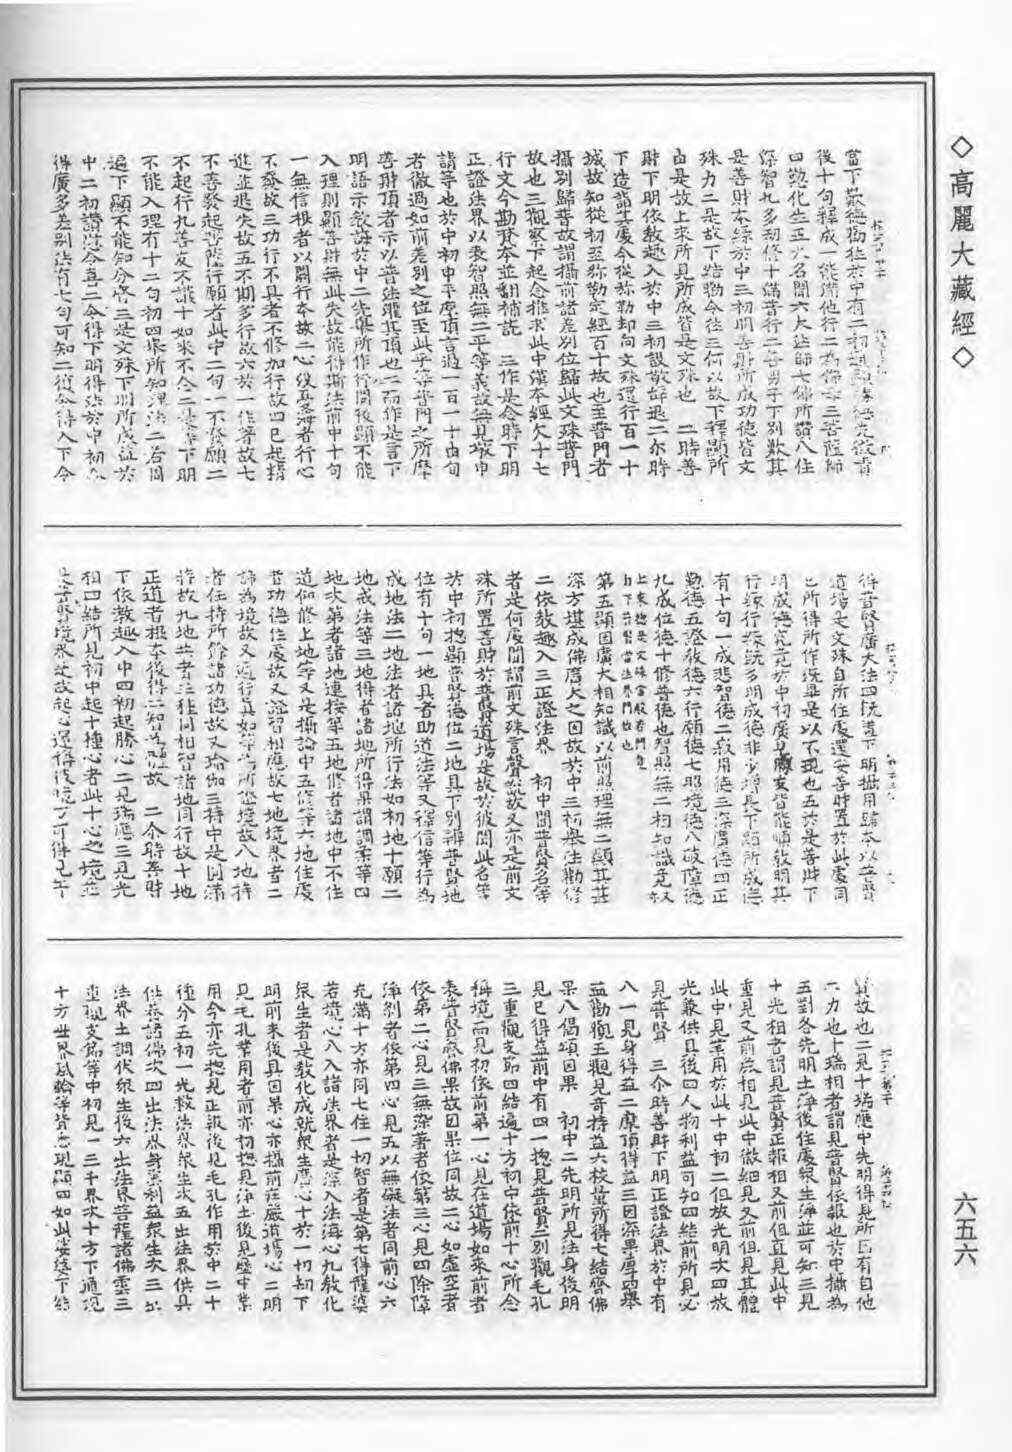 ◇高麗大藏經◇
六五六
深智九多劫修十滿普行二善男子下別歎其
是善財本緣於中三初明善財所成功德皆文
殊力二是故下結勸令往三何以故下釋顯所
由是故上來所見所成皆是文殊也 二時善
財下明依教趣入於中三初設敬辭退二亦時
下造詣其處今從弥勒却向文殊還行百一十
城故知從初至弥勒定經百十故也至普門者
攝別歸普故謂攝前諸差別位歸此文殊普門
故也三觀察下起念推求此中漢本經欠十七
行文今勘梵本並翻補訖 三作是念時下明
正證法界以表智照無二平等義故無見壞中
請等也於中初申手摩頂言過一百一十由旬
者徹過如前差別之位至此乎等普門之所摩
善財頂者示以普法灌其頂也二而作是言下
明語示教誨於中二先舉所作行間後顯不能
入理則顯善財無此失故能得斯法前中十句
一無信根者以闕行本故二心伎劣者行心
不發故三功行不具者不修加行故四已起精
進並退失故五不期多行故六於一住著故七
不善發起菩薩行願者此中二句一不發願二
不起行九善友不護十如來不念二是等下明
不能入理有十二句初四舉所知理法二若因
遍下顯不能知分齊三是文殊下明所成益於
中二初讚法令喜二令得下明得法於中初
得廣多差別法有七句可知二從令得入下令
得普賢廣大法四旣置下明攝用歸本以普賢
道場是文殊自所住處還安善財置於此處同
己所得所作旣畢是以不現也五於是善財下
明成德究竟於中初廣見勝友皆能順教明其
行緣行緣旣多明成德非少增長下顯所成德
有十句一成悲智德二寂用德三深廣德四正
勤德五證教德六行願德七照境德八破障德
九成位德十修普德也智照無二相知識竟
上來總是文殊當般若門
自下普賢當法界門故也
第五顯因廣大相知識以前照理無二顯其甚
深方堪成佛廣大之因故於中三初舉法勸修
二依教趣入三正證法界 初中聞普賢名等
者是何處聞謂前文殊言聲說故又亦是前文
殊所置善財於普賢道場是故於彼聞此名等
於中初摠顯普賢德位二地具下別辨普賢地
位有十句一地具者助道法等又釋信等行為
成地法二地法者諸地所行法如初地十願二
地戒法等三地得者諸地所得果謂調柔等四
地次第者諸地連接等五地修者諸地中不住
道仰修上地等又是攝論中五修等六地住處
皆功德住處故又證智相應故七地境界者二
諦為境故又遍行真如等為所證境故八地持
者任持所餘諸功德故又瑜伽三持中是圓滿
持故九地共者三種同相智諸地同行故十地
正道者根本後得二智為體故 二令時善財
下依教趣入中四初起勝心二見瑞應三見光
相四結所見初中起十種心者此十心之境並
賢故也二見十瑞應中先明得見所因有自他
二力也十瑞相者謂見普賢依報也於中攝為
五對各先明土淨後住處衆生淨並可知三見
十光相者謂見普賢正報相又前但直見此中
重見又前麁相見此中微細見又前但見其體
此中見業用於此十中初二但放光明次四放
光兼供具後四人物利益可知四結前所見必
見普賢 三令時善財下明正證法界於中有
八一見身得益二摩頂得益三因深果厚四舉
益勸觀五觀見奇特益六校量所得七結齊佛
果八偈頌因果 初中二先明所見法身後明
見已得益前中有四一摠見普賢二別觀毛孔
三重觀支節四結遍十方初中依前十心所念
稱境而見初依前第一心見在道場如來前者
表普賢齊佛果故因果位同故二心如虛空者
依第二心見三無染著者依第三心見四除障
淨刹者依第四心見五以無礙法者同前心六
充滿十方亦同七住一切智者是第七得薩婆
若境心八入諸法界者是深入法海心九教化
衆生者是教化成就衆生廣心十於一切劫下
明前來後具因果心亦攝前莊嚴道場心二明
見毛孔業用者前亦初摠見淨土後見塵中業
用今亦先摠見正報後見毛孔作用於中二十
種分五初一光救法界衆生次五出法界供具
供養諸佛次四出法界身業利益衆生次三出
法界土調伏衆生後六出法界菩薩諸佛雲三
重觀支節等中初見一三千界次十方下通現
十方世界風輪等皆悉現顯四如此娑婆下結